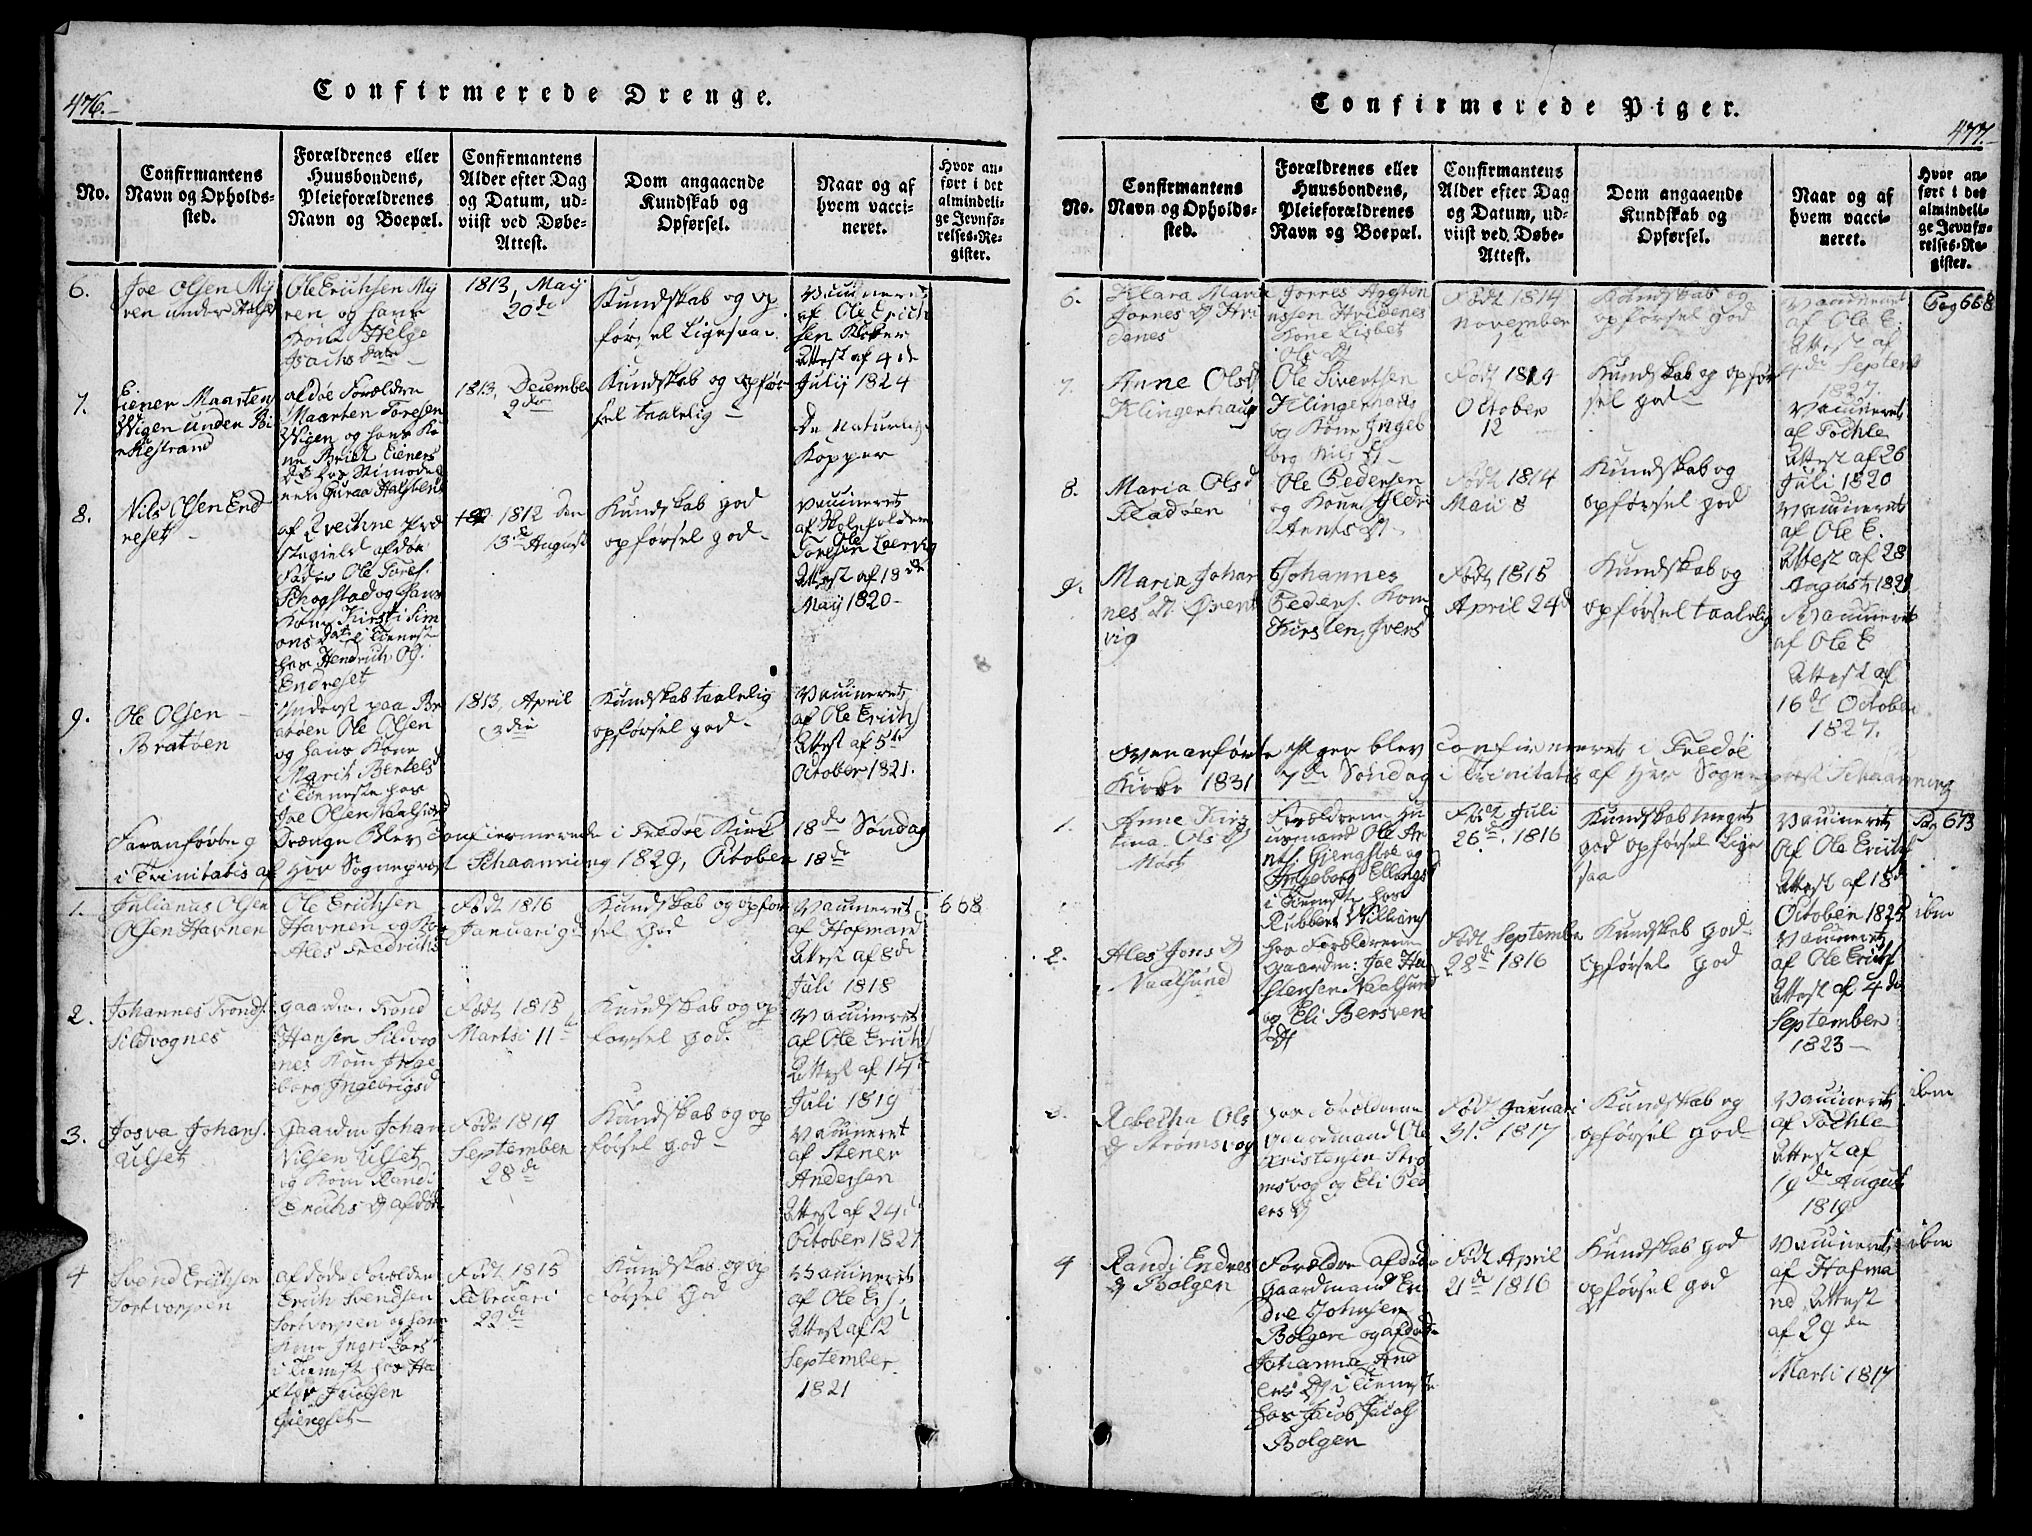 476.
Confirmerede Drenge.
No.
Confirmantens
Navn og Opholds-
sted.
Forældrenes eller
Huusbondens,
Pleieforældrenes
Navn og Boepæl.
Confirmantens
Alder efter Dag
og Datum, ud-
viist ved Døbe-
Attest.
Dom angaaende
Kundskab og
Opførsel.
Naar og af
hvem vacci-
neret.
Hvor an-
ført i det
almindeli-
ge Jevnfø-
relses-Re-
gister.
6.
Joe Olsen My
ren under
Ole Erichsen My
ren og hans
Kone Helge
1813, May
20de
Kundskab og op
førsel Ligesaa
Vaccineret
af Ole Erich
sen
Attest af 4de
July 1824
7.
Einer Maartens
Wigen under
afdøe Forældere
Maarten Toresen
Wigen og hans Ko
ne
1813, December
2den
Kundskab og opfør
sel taalelig
De Naturlig
Kopper
8.
Nils Olsen End
reset
af Qvechne Præ
stegield afdøe
Fader Ole Tores.
Skogstad og hans
Kone Kirsti Sim
ons Datr i tieneste
hos Hendrich Ol.
Endreset
1812 den
13de August
Kundskab god
opførsel god
Vaccineret
af
Ole
Toresen Leervig
Attest af 18de
May 1820
9.
Ole Olsen
Bratøen
Inderst paa Br
atøen Ole Olsen
og hans Kone
Marit Bertels
i tieneste hos
Joe Olsen
1813, April
3die
Kundskab taalelig
opførsel god
Vaccineret
af Ole Erichs
Attest af 5te
October 1821.
Foranførte 9 Drænge Blev Confiermerede i Fredøe Kirk 18de Søndag
i Trinitatis af Her Sogneprest Schaanning 1829, October 18de
1.
Julianus Olsen
Olsen Havnen
Ole Erichsen
Havnen og Kone
Ales Fredrichs
Født 1816
Januari 9de
Kundskab og opfør
sel God
Vaccineret
af Hofmand
Attest af 8de
Juli 1818
668
2.
Johannes Trondf.
Sildvognes
Gaardm. Trond
Hansen Sildvog
nes Kone Inge
borg Ingebrigsd
Født 1815
Martsi 11te
Kundskab og op
førsel god.
Vaccineret
af Ole Erichs
Attest af 14de
Juli 1819
3.
Josva Johans.
Ulset
Gaardm Johan
Nilsen Ulset
og Kone Randi
Erichs D afdøde
Født 1814
September
28de
Kundskab og op
førsel god
Vaccineret
af Stener
Andersen
Attest af 24de
October 1827
4
Svend Erichsen
Sortvorpen
afdøde Forælder
Erich Svendsen
Sortvorpen og hans
Kone Ingri Lars
i Tienest hos Ha
Født 1815
Februari
22de
Kundskab og op
førsel God
Vaccineret
af Ole Er.
Attest af 12
September
1821
477.
Confirmerede Piger.
No.
Confirmantens
Navn og Opholds-
sted.
Forældrenes eller
Huusbondens,
Pleieforældrenes
Navn og Boepæl.
Confirmantens
Alder efter Dag
og Datum, ud-
viist ved Døbe-
Attest.
Dom angaaende
Kundskab og
Opførsel.
Naar og af
hvem vacci-
neret.
Hvor an-
ført i det
almindeli-
ge Jevnfø-
relses-Re-
gister.
6.
Klara Maria
Jornes D Hvi
denes
Jornes
Hvidenes
Kone Lisbet
Ols D
Født 1814
November
Kundskab og
opførsel god
Vaccineret
af Ole E.
Attest af
4de Septemb
1827
Pag 668
7.
Anne Olsd
Klingenhaug
Ole Sivertsen
Klingenhaug
og Kone Ingeb
borg Nils D
Født 1814
October
12
Kundskab og opfør
sel god
Vaccineret
af Tochle
Attest af 26
Juli 1820
8.
Maria Olsd
Fladøen
Ole Pedersen
og Kone
Arnts D
Født 1814
Mai 8
Kundskab og
opførsel god
Vaccineret
af Ole E.
Attest af 28
August 1821
9.
Maria Johan
nes D. Ørent
vig
Johannes
Peders. Kone
Kirsten Ivers
Født 1815
April 24d
Kundskab og
opførsel taalelig
Vaccineret
af Ole E
Attest af
16de October
1827.
Ovenanførte Piger blev Confirmeret i Fredøe
Kirke 1831 7de Søndag i Trinitatis af Her Sogneprest Schaanning
1.
Anne Kirs
tina Ols D
Forældrene Hu
usmand Ole Ar
Ingeborg Ellings
i Tieneste hos
Født Juli
26de 1816
Kundskab meget
god opførsel Lige
saa
Vaccineret
Af Ole Erichs
Attest af 18de
October 1825
Pag 673
2.
Ales Jons D
Vaalsund
hos Forældrene
Gaardm: Joe Ha
stensen Vaalsund
og Eli Bersvens
Dt
Født September
28de 1816
Kundskab god
opførsel god
Vaccineret
af Ole Erichs
Attest af 4de
September
1823
ibm
3.
Rebecha Ols
D Strømsvog
hos Forælderne
Gaardmand Ole
Kristensen Strø
msvog og Eli Ped
ers D
Født Januari
31. 1817
Kundskab og
opførsel god
Vaccineret
af Tochle
Attest af
19de August
1819
ibm
4
Randi Endres
D Bolgen
Forældre afdøde
Gaardmand En
dre Johnsen
Bolgen og afdøde
Johanna And
ers D i tieneste
hos Jacob Jacobs
Bolgen
Født April
21de 1816
Kundskab god
opførsel god
Vaccineret
af Hofma
nd, Attest
af 29de
Marti 1817
ibm